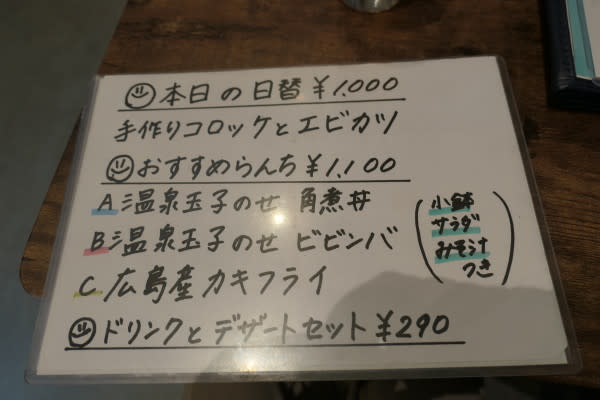 本日の日替 ¥1.000
手作りコロッケとエビカツ
おすすめらんち ¥1.100
A 温泉玉子のせ 角煮丼
B 温泉玉子のせ ビビンバ
C 広島産カキフライ
(小鉢
サラダ
みそ汁
つき)
ドリンクとデザートセット ¥290